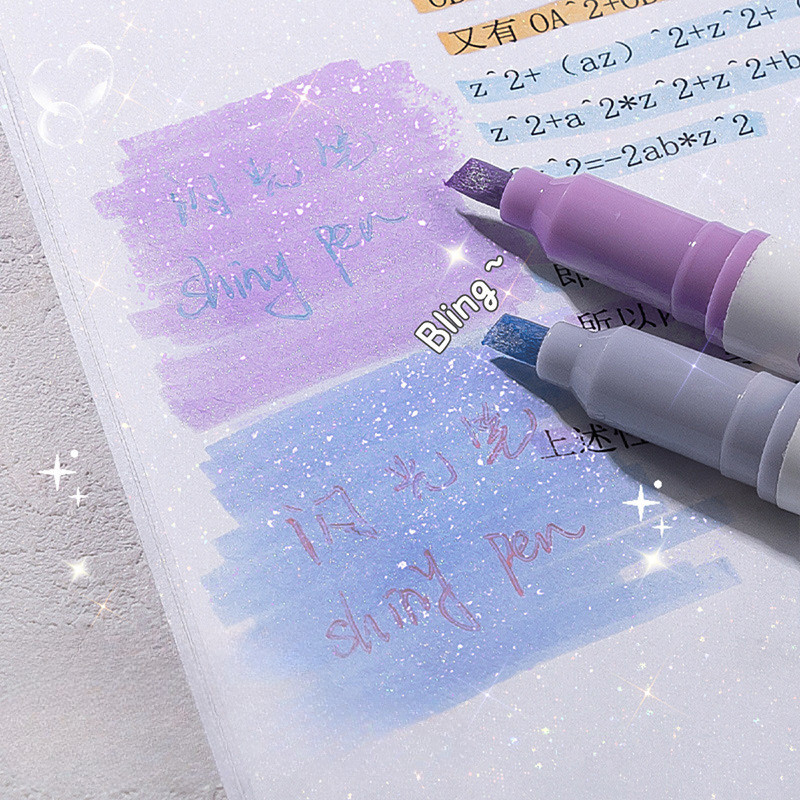 又有 OA^2+OB
z^2+（az）^2+z^2+（
z^2+a^2*z^2+z^2+b
^2=-2ab*z^2
闪光笔
shiny pen
Bling~
即
所以
闪光笔
上述
shiny pen